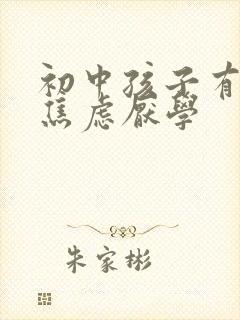 初中孩子有
焦虑厌學
朱家彬